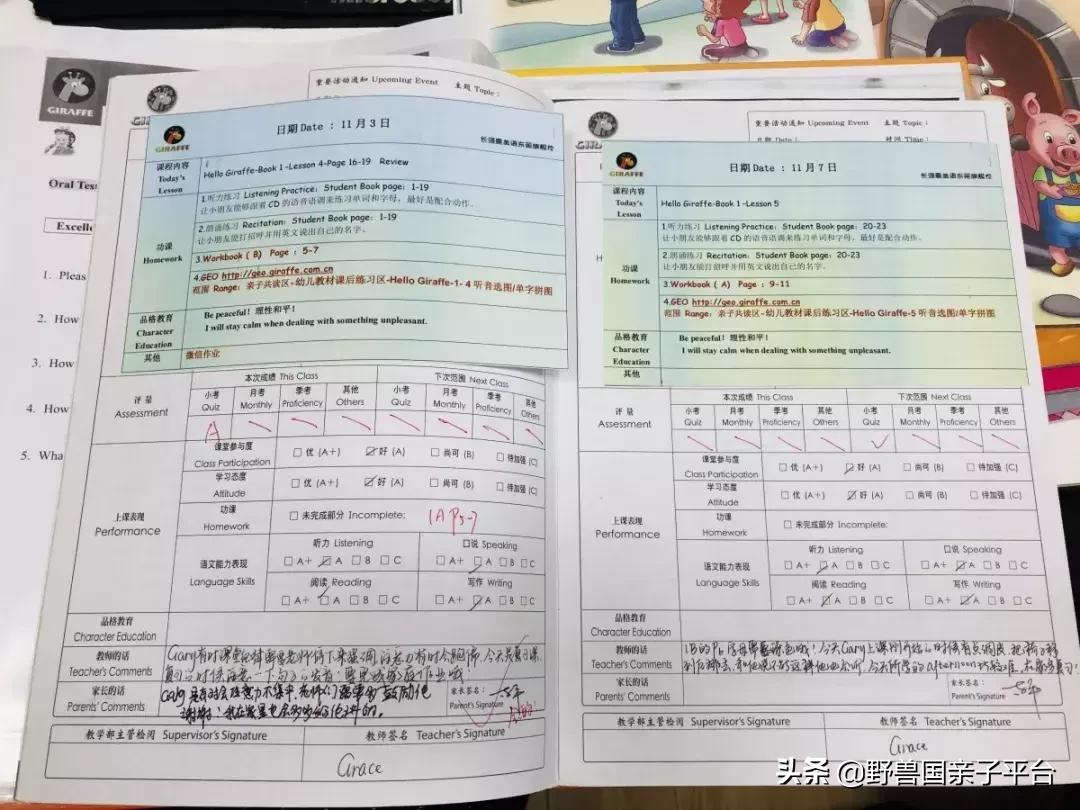 GIRAFFE
Oral Tes
Excelle
1. Pleas
2. How
3. How
4. How
5. Wha
重要活动通知 Upcoming Event 主题 Topic：
GIRAFFE
日期Date ： 11月3日
长颈鹿美语东丽旗舰校
课程内容 Today's Lesson
Hello Giraffe-Book 1-Lesson 4-Page 16-19 Review
功课 Homework
1.听力练习 Listening Practice：Student Book page：1-19
让小朋友能够跟着CD的语音语调来练习单词和字母，最好是配合动作。
2.朗诵练习 Recitation：Student Book page：1-19
让小朋友能打招呼并用英文说出自己的名字。
3.Workbook（B）Page：5-7
4.GEO http://geo.giraffe.com.cn
范围 Range：亲子共读区-幼儿教材课后练习区-Hello Giraffe-1-4 听音选图/单字拼图
品格教育 Character Education
Be peaceful！理性和平！
I will stay calm when dealing with something unpleasant.
其他
微信作业
评量 Assessment
本次成绩 This Class 下次范围 Next Class
小考 Quiz 月考 Monthly 季考 Proficiency 其他 Others 小考 Quiz 月考 Monthly 季考 Proficiency 其他 Others
A
上课表现 Performance
课堂参与度 Class Participation □优 (A+) ☑好 (A) □尚可 (B) □待加强 (C)
学习态度 Attitude □优 (A+) ☑好 (A) □尚可 (B) □待加强 (C)
功课 Homework □未完成部分 Incomplete：
语文能力表现 Language Skills
听力 Listening 口说 Speaking
□A+ ☑A □B □C □A+ ☑A □B □C
阅读 Reading 写作 Writing
□A+ ☑A □B □C □A+ ☑A □B □C
品格教育 Character Education
教师的话 Teacher's Comments
家长的话 Parents' Comments
家长签名： Parent's Signature
教学部主管检阅 Supervisor's Signature 教师签名 Teacher's Signature
Grace
重要活动通知 Upcoming Event 主题 Topic：
日期 Date： 时间 Time：
GIRAFFE
日期Date ： 11月7日
长颈鹿美语东丽旗舰校
课程内容 Today's Lesson
Hello Giraffe-Book 1-Lesson 5
功课 Homework
1.听力练习 Listening Practice：Student Book page：20-23
让小朋友能够跟着CD的语音语调来练习单词和字母，最好是配合动作。
2.朗诵练习 Recitation：Student Book page：20-23
让小朋友能打招呼并用英文说出自己的名字。
3.Workbook（A）Page：9-11
4.GEO http://geo.giraffe.com.cn
范围 Range：亲子共读区-幼儿教材课后练习区-Hello Giraffe-5 听音选图/单字拼图
品格教育 Character Education
Be peaceful！理性和平！
I will stay calm when dealing with something unpleasant.
其他
评量 Assessment
本次成绩 This Class 下次范围 Next Class
小考 Quiz 月考 Monthly 季考 Proficiency 其他 Others 小考 Quiz 月考 Monthly 季考 Proficiency 其他 Others
上课表现 Performance
课堂参与度 Class Participation □优 (A+) ☑好 (A) □尚可 (B) □待加强 (C)
学习态度 Attitude □优 (A+) ☑好 (A) □尚可 (B) □待加强 (C)
功课 Homework □未完成部分 Incomplete：
语文能力表现 Language Skills
听力 Listening 口说 Speaking
□A+ ☑A □B □C □A+ ☑A □B □C
阅读 Reading 写作 Writing
□A+ ☑A □B □C □A+ ☑A □B □C
品格教育 Character Education
教师的话 Teacher's Comments
家长的话 Parents' Comments
家长签名： Parent's Signature
教学部主管检阅 Supervisor's Signature 教师签名 Teacher's Signature
Grace
头条 @野兽国亲子平台